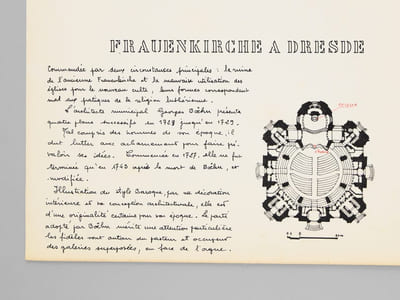 FRAUENKIRCHE A DRESDE
Commandée par deux circonstances principales : la ruine
de l'ancienne Frauenkirche et la mauvaise utilisation des
églises pour le nouveau culte, leurs formes correspondant
mal aux pratiques de la religion luthérienne.
L'architecte municipal Georges Boehr présenta
quatre plans successifs de 1722 jusqu'en 1725.
Mal compris des hommes de son époque, il
dut lutter avec acharnement pour faire pré-
valoir ses idées. Commencée en 1727, elle ne fut
terminée qu'en 1743 après la mort de Boehr et
modifiée.
Illustration du style Baroque, par sa décoration
intérieure et sa conception architecturale, elle est
d'une originalité certaine pour son époque. Le parti
adopté par Boehr mérite une attention particulière
les fidèles sont autour du pasteur et occupent
des galeries superposées, en face de l'orgue.